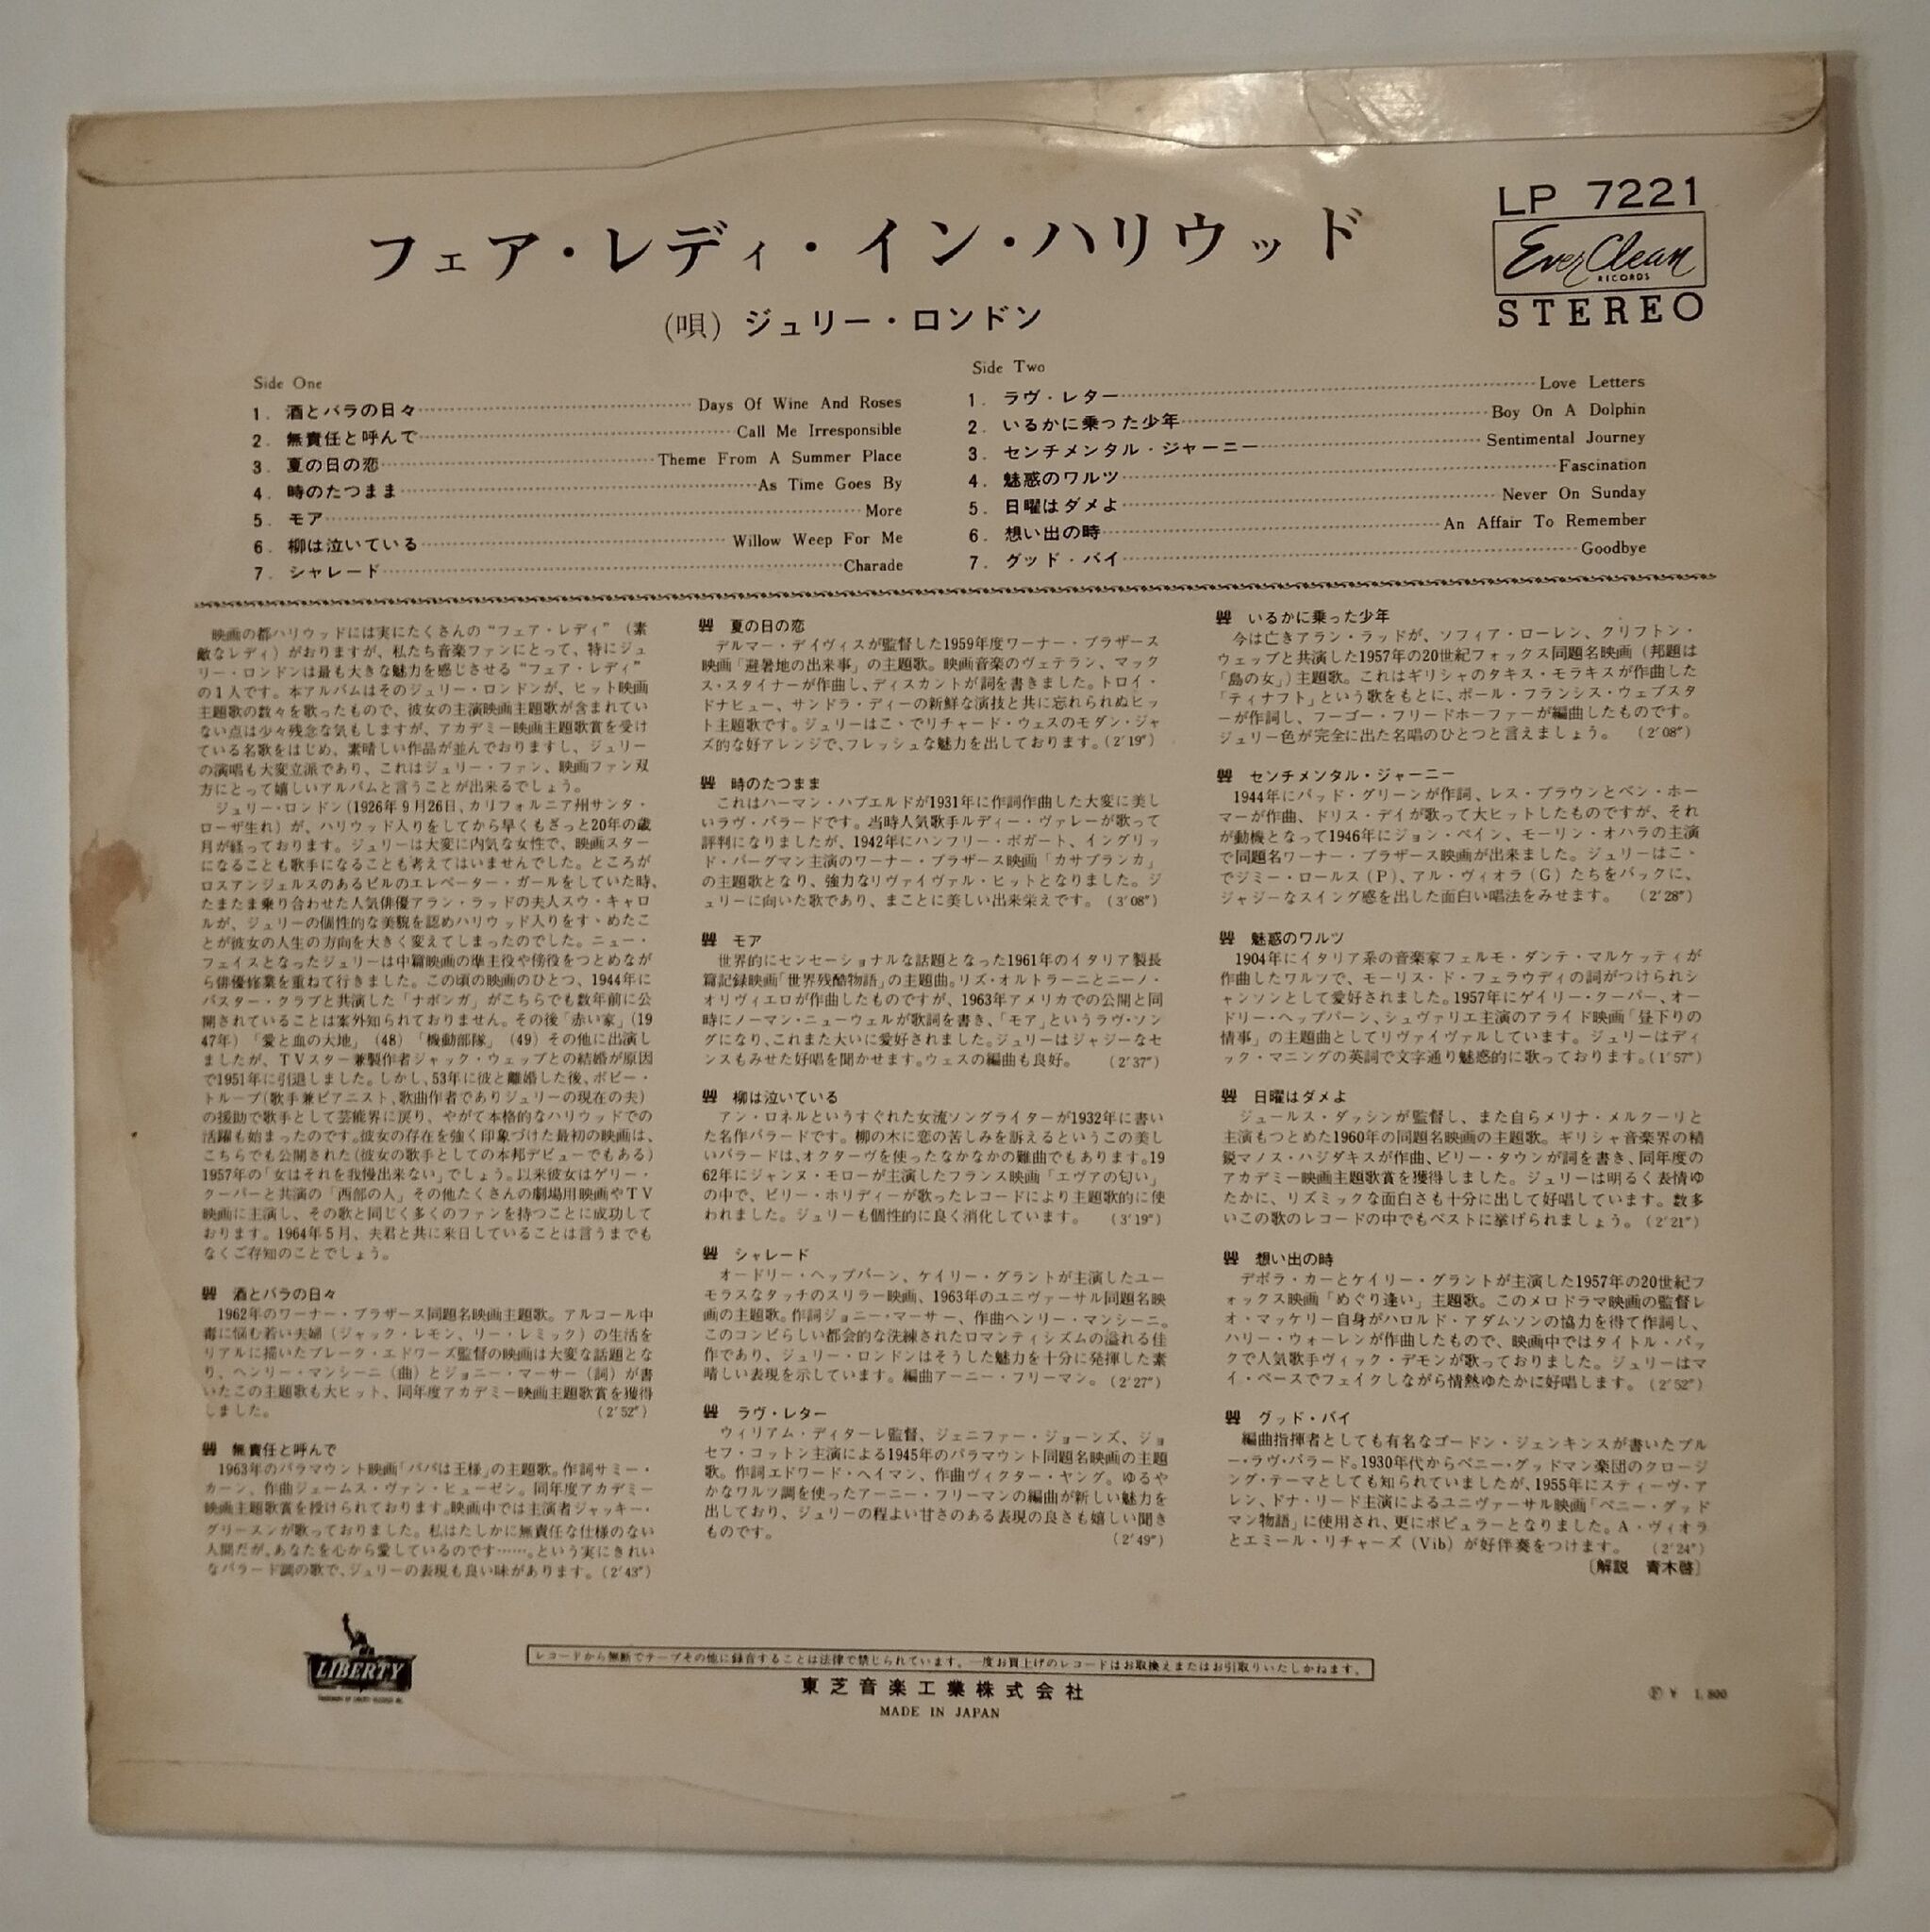 LP 7221
Ever Clean
RECORDS
STEREO
フェア・レディ・イン・ハリウッド
(唄) ジュリー・ロンドン
Side One
1. 酒とバラの日々 Days Of Wine And Roses
2. 無責任と呼んで Call Me Irresponsible
3. 夏の日の恋 Theme From A Summer Place
4. 時のたつまま As Time Goes By
5. モア More
6. 柳は泣いている Willow Weep For Me
7. シャレード Charade
Side Two
1. ラヴ・レター Love Letters
2. いるかに乗った少年 Boy On A Dolphin
3. センチメンタル・ジャーニー Sentimental Journey
4. 魅惑のワルツ Fascination
5. 日曜はダメよ Never On Sunday
6. 想い出の時 An Affair To Remember
7. グッド・バイ Goodbye
映画の都ハリウッドには実にたくさんの“フェア・レディ”(素
敵なレディ)がおりますが、私たち音楽ファンにとって、特にジュ
リー・ロンドンは最も大きな魅力を感じさせる“フェア・レディ”
の1人です。本アルバムはそのジュリー・ロンドンが、ヒット映画
主題歌の数々を歌ったもので、彼女の主演映画主題歌が含まれてい
ない点は少々残念な気もしますが、アカデミー映画主題歌賞を受け
ている名歌をはじめ、素晴しい作品が並んでおりますし、ジュリー
の演唱も大変立派であり、これはジュリー・ファン、映画ファン双
方にとって嬉しいアルバムと言うことが出来るでしょう。
ジュリー・ロンドン(1926年9月26日、カリフォルニア州サンタ・
ローザ生れ)が、ハリウッド入りをしてから早くもざっと20年の歳
月が経っております。ジュリーは大変に内気な女性で、映画スター
になることも歌手になることも考えてはいませんでした。ところが
ロスアンジェルスのあるビルのエレベーター・ガールをしていた時、
たまたま乗り合わせた人気俳優アラン・ラッドの夫人スウ・キャロ
ルが、ジュリーの個性的な美貌を認めハリウッド入りをすゝめたこ
とが彼女の人生の方向を大きく変えてしまったのでした。ニュー・
フェイスとなったジュリーは中篇映画の準主役や傍役をつとめなが
ら俳優修業を重ねて行きました。この頃の映画のひとつ、1944年に
バスター・クラブと共演した「ナボンガ」がこちらでも数年前に公
開されていることは案外知られておりません。その後「赤い家」(19
47年)「愛と血の大地」(48)「機動部隊」(49)その他に出演し
ましたが、TVスター兼製作者ジャック・ウェッブとの結婚が原因
で1951年に引退しました。しかし、53年に彼と離婚した後、ボビー・
トループ(歌手兼ピアニスト、歌曲作者でありジュリーの現在の夫)
の援助で歌手として芸能界に戻り、やがて本格的なハリウッドでの
活躍も始まったのです。彼女の存在を強く印象づけた最初の映画は、
こちらでも公開された(彼女の歌手としての本邦デビューでもある)
1957年の「女はそれを我慢出来ない」でしょう。以来彼女はゲリー・
クーパーと共演の「西部の人」その他たくさんの劇場用映画やTV
映画に主演し、その歌と同じく多くのファンを持つことに成功して
おります。1964年5月、夫君と共に来日していることは言うまでも
なくご存知のことでしょう。
酒とバラの日々
1962年のワーナー・ブラザース同題名映画主題歌。アルコール中
毒に悩む若い夫婦(ジャック・レモン、リー・レミック)の生活を
リアルに描いたブレーク・エドワーズ監督の映画は大変な話題とな
り、ヘンリー・マンシーニ(曲)とジョニー・マーサー(詞)が書
いたこの主題歌も大ヒット、同年度アカデミー映画主題歌賞を獲得
しました。 (2′52″)
無責任と呼んで
1963年のパラマウント映画「パパは王様」の主題歌。作詞サミー・
カーン、作曲ジェームス・ヴァン・ヒューゼン。同年度アカデミー
映画主題歌賞を授けられております。映画中では主演者ジャッキー・
グリースンが歌っておりました。私はたしかに無責任な仕様のない
人間だが、あなたを心から愛しているのです……。という実にきれい
なバラード調の歌で、ジュリーの表現も良い味があります。(2′43″)
夏の日の恋
デルマー・デイヴィスが監督した1959年度ワーナー・ブラザース
映画「避暑地の出来事」の主題歌。映画音楽のヴェテラン、マック
ス・スタイナーが作曲し、ディスカントが詞を書きました。トロイ・
ドナヒュー、サンドラ・ディーの新鮮な演技と共に忘れられぬヒッ
ト主題歌です。ジュリーはこゝでリチャード・ウェスのモダン・ジャ
ズ的な好アレンジで、フレッシュな魅力を出しております。(2′19″)
時のたつまま
これはハーマン・ハプエルドが1931年に作詞作曲した大変に美し
いラヴ・バラードです。当時人気歌手ルディー・ヴァレーが歌って
評判になりましたが、1942年にハンフリー・ボガート、イングリッ
ド・バーグマン主演のワーナー・ブラザース映画「カサブランカ」
の主題歌となり、強力なリヴァイヴァル・ヒットとなりました。ジ
ュリーに向いた歌であり、まことに美しい出来栄えです。(3′08″)
モア
世界的にセンセーショナルな話題となった1961年のイタリア製長
篇記録映画「世界残酷物語」の主題曲。リズ・オルトラーニとニーノ・
オリヴィエロが作曲したものですが、1963年アメリカでの公開と同
時にノーマン・ニューウェルが歌詞を書き、「モア」というラヴ・ソン
グになり、これまた大いに愛好されました。ジュリーはジャジーなセ
ンスもみせた好唱を聞かせます。ウェスの編曲も良好。 (2′37″)
柳は泣いている
アン・ロネルというすぐれた女流ソングライターが1932年に書い
た名作バラードです。柳の木に恋の苦しみを訴えるというこの美し
いバラードは、オクターヴを使ったなかなかの難曲でもあります。19
62年にジャンヌ・モローが主演したフランス映画「エヴァの匂い」
の中で、ビリー・ホリディーが歌ったレコードにより主題歌的に使
われました。ジュリーも個性的に良く消化しています。 (3′19″)
シャレード
オードリー・ヘップバーン、ケイリー・グラントが主演したユー
モラスなタッチのスリラー映画、1963年のユニヴァーサル同題名映
画の主題歌。作詞ジョニー・マーサー、作曲ヘンリー・マンシーニ。
このコンビらしい都会的な洗練されたロマンティシズムの溢れる佳
作であり、ジュリー・ロンドンはそうした魅力を十分に発揮した素
晴しい表現を示しています。編曲アーニー・フリーマン。(2′27″)
ラヴ・レター
ウィリアム・ディターレ監督、ジェニファー・ジョーンズ、ジョ
セフ・コットン主演による1945年のパラマウント同題名映画の主題
歌。作詞エドワード・ヘイマン、作曲ヴィクター・ヤング。ゆるや
かなワルツ調を使ったアーニー・フリーマンの編曲が新しい魅力を
出しており、ジュリーの程よい甘さのある表現の良さも嬉しい聞き
ものです。 (2′49″)
いるかに乗った少年
今は亡きアラン・ラッドが、ソフィア・ローレン、クリフトン・
ウェッブと共演した1957年の20世紀フォックス同題名映画(邦題は
「島の女」)主題歌。これはギリシャのタキス・モラキスが作曲した
「ティナフト」という歌をもとに、ポール・フランシス・ウェブスタ
ーが作詞し、フーゴー・フリードホーファーが編曲したものです。
ジュリー色が完全に出た名唱のひとつと言えましょう。 (2′08″)
センチメンタル・ジャーニー
1944年にバッド・グリーンが作詞、レス・ブラウンとベン・ホー
マーが作曲、ドリス・デイが歌って大ヒットしたものですが、それ
が動機となって1946年にジョン・ペイン、モーリン・オハラの主演
で同題名ワーナー・ブラザース映画が出来ました。ジュリーはこゝ
でジミー・ロールス(P)、アル・ヴィオラ(G)たちをバックに、
ジャジーなスイング感を出した面白い唱法をみせます。 (2′28″)
魅惑のワルツ
1904年にイタリア系の音楽家フェルモ・ダンテ・マルケッティが
作曲したワルツで、モーリス・ド・フェラウディの詞がつけられシ
ャンソンとして愛好されました。1957年にゲイリー・クーパー、オー
ドリー・ヘップバーン、シュヴァリエ主演のアライド映画「昼下りの
情事」の主題曲としてリヴァイヴァルしています。ジュリーはディ
ック・マニングの英詞で文字通り魅惑的に歌っております。(1′57″)
日曜はダメよ
ジュールス・ダッシンが監督し、また自らメリナ・メルクーリと
主演もつとめた1960年の同題名映画の主題歌。ギリシャ音楽界の精
鋭マノス・ハジダキスが作曲、ビリー・タウンが詞を書き、同年度の
アカデミー映画主題歌賞を獲得しました。ジュリーは明るく表情ゆ
たかに、リズミックな面白さも十分に出して好唱しています。数多
いこの歌のレコードの中でもベストに挙げられましょう。(2′21″)
想い出の時
デボラ・カーとケイリー・グラントが主演した1957年の20世紀フ
ォックス映画「めぐり逢い」主題歌。このメロドラマ映画の監督レ
オ・マッケリー自身がハロルド・アダムソンの協力を得て作詞し、
ハリー・ウォーレンが作曲したもので、映画中ではタイトル・バッ
クで人気歌手ヴィック・デモンが歌っておりました。ジュリーはマ
イ・ペースでフェイクしながら情熱ゆたかに好唱します。(2′52″)
グッド・バイ
編曲指揮者としても有名なゴードン・ジェンキンスが書いたブル
ー・ラヴ・バラード。1930年代からベニー・グッドマン楽団のクロージ
ング・テーマとしても知られていましたが、1955年にスティーヴ・ア
レン、ドナ・リード主演によるユニヴァーサル映画「ベニー・グッド
マン物語」に使用され、更にポピュラーとなりました。A・ヴィオラ
とエミール・リチャーズ(Vib)が好伴奏をつけます。 (2′24″)
〔解説 青木啓〕
LIBERTY
レコードから無断でテープその他に録音することは法律で禁じられています。一度お買上げのレコードはお取換えまたはお引取りいたしかねます。
東芝音楽工業株式会社
MADE IN JAPAN
Ⓟ ¥ 1,800